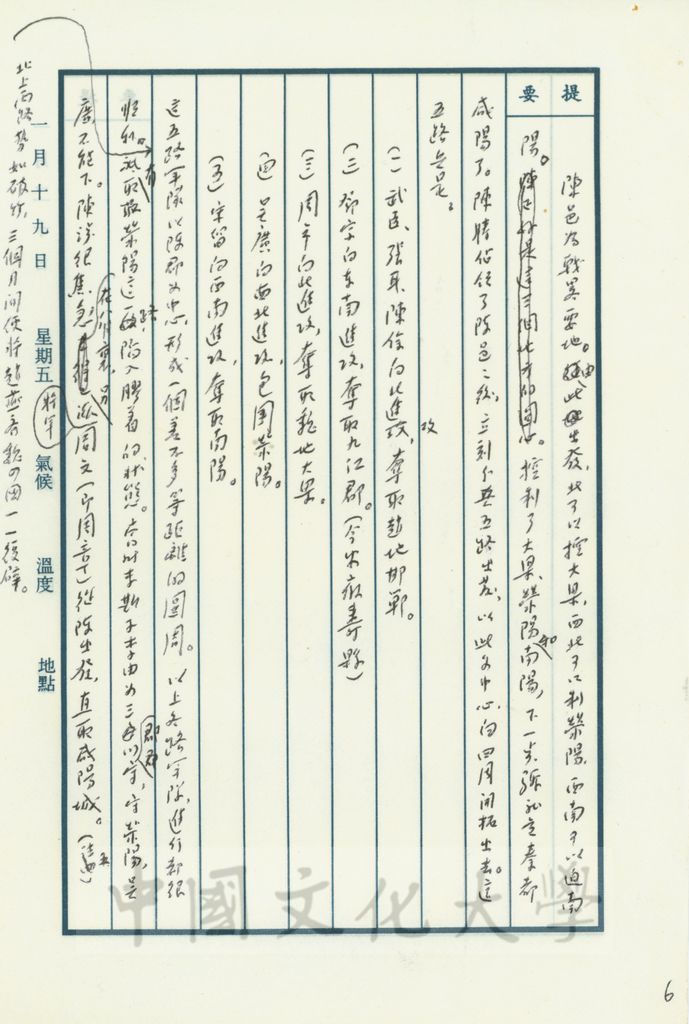 提要
陳邑為戰略要地。由此出發，北可以控大梁，西北可以制滎陽，西南可以迫南
陽。控制了大梁、滎陽和南陽，下一步就是秦都
咸陽了。陳勝佔領了陳邑之後，立刻分兵五路出發，以此為中心，向四周開拓出去。這
五路兵是。
(一) 武臣、張耳、陳餘向北進攻，奪取趙地邯鄲。
(二) 鄧宗向東南進攻，奪取九江郡。(今安徽壽縣)
(三) 周市向北進攻，奪取魏地大梁。
(四) 吳廣向西北進攻，包圍滎陽。
(五) 宋留向西南進攻，奪取南陽。
這五路軍隊以陳郡為中心，形成一個差不多等距離的圓周。以上各路軍隊，進行都很
順利。取滎陽這一路，陷入膠着的狀態。李斯子李由為三川郡守，守滎陽，吳
廣不能下。陳涉很焦急，另派周文(即周章)從陳出發，直取咸陽城。
將軍
北上的路勢如破竹，三個月間便將趙燕齊魏四國一一復辟。
一月十九日 星期五 氣候 溫度 地點
中國文化大學
6